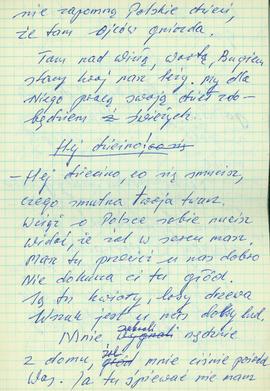 nie zapomną Polskie dzieci,
że tam Ojców gniazda.
Tam nad Wisłą, Wartą, Bugiem
stary kraj nasz leży. My dla
Niego pracą swoją dziś
będziem z
Hej dziecino
– Hej dziecino, co się smucisz,
czego smutna twoja twarz
Wciąż o Polsce sobie nucisz
widać, że żal w sercu masz,
Masz tu przecież u nas dobro
Nie dokucza ci tu głód.
Są tu kwiaty, lasy drzewa
Wszak jest u nas dobry lud.
Mnie nędznie
z domu, żal mnie ciśnie pośród
Was. Ja tu śpiewać nie mam